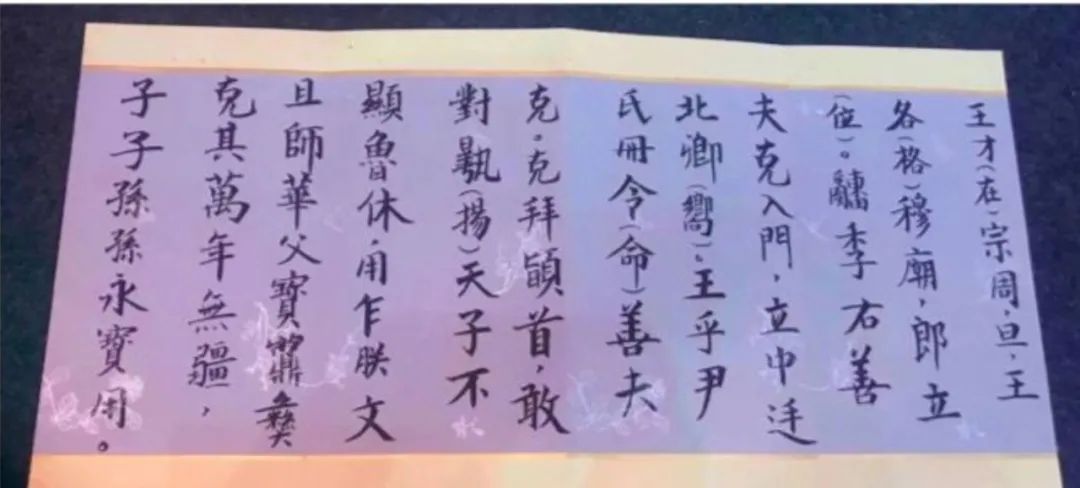 王才(在)宗周,旦,王
各(格)穆廟,郎立
(位)。䚄季右善
夫克入門,立中廷
北卿(嚮)。王乎尹
氏冊令(命)善夫
克。克拜䭫首,敢
對揚(揚)天子不
顯魯休,用乍朕文
且師華父寶鼎彝
克其萬年無疆,
子子孫孫永寶用。